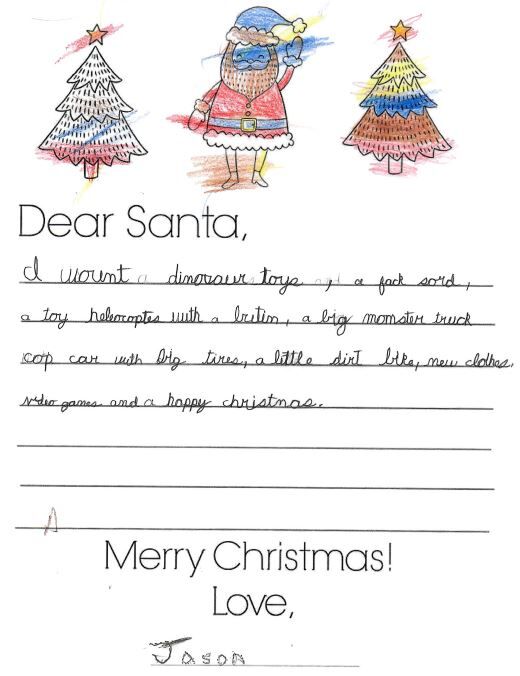 Dear Santa,
I wount a dinosaur toys, a fack sord,
a toy helecoptes with a brttin, a big momster truck
cop car with big tires, a little dirt bike, new clothes,
video games and a happy christmas.
A
Merry Christmas!
Love,
Jason